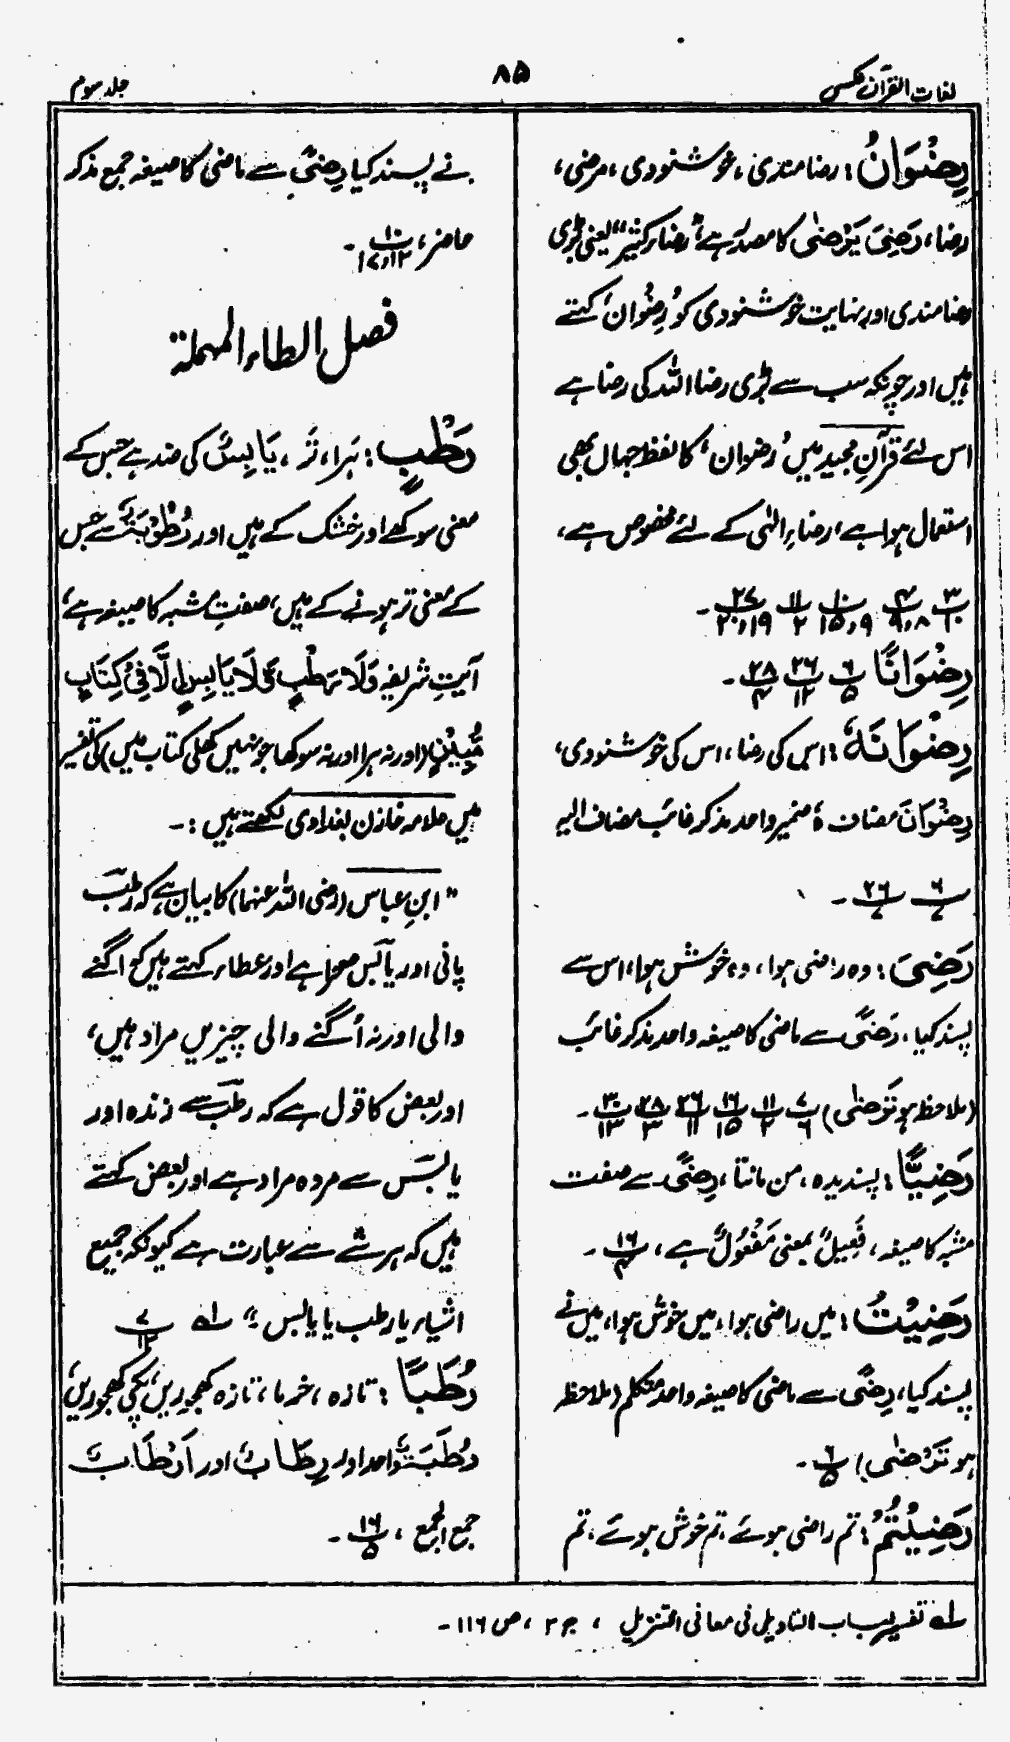 لغات القرآن مکمل
۸۵
جلد سوم
رِضْوَانٌ: رضامندی، خوشنودی، مرضی،
رضا، رَضِیَ یَرْضٰی کا مصدر ہے، "رضاء کثیر" یعنی بڑی
رضامندی اور نہایت خوشنودی کو 'رضوان' کہتے
ہیں اور چونکہ سب سے بڑی رضا اللہ کی رضا ہے
اس لئے قرآن مجید میں 'رضوان' کا لفظ جہاں بھی
استعمال ہوا ہے، رضاءِ الٰہی کے لئے مخصوص ہے،
۳/۱۰ ۴/۹،۸ ۱۰/۱۵،۹ ۱۱/۲ ۲۷/۲۰،۱۹ ۔
رِضْوَانًا ۶/۵ ۲۶/۱۲ ۲۸/۴ ۔
رِضْوَانَهٗ: اس کی رضا، اس کی خوشنودی،
رِضْوَانَ مضاف ہٗ ضمیر واحد مذکر غائب مضاف الیہ
۶/۷ ۲۶/۷ ۔
رَضِیَ: وہ راضی ہوا، وہ خوش ہوا، اس نے
پسند کیا، رِضًی سے ماضی کا صیغہ واحد مذکر غائب
(ملاحظہ ہو تَرْضٰی) ۷/۶ ۱۱/۲ ۱۶/۱۵ ۲۶/۱۱ ۲۸/۳ ۳۰/۱۳ ۔
رَضِیًّا: پسندیدہ، من مانتا، رِضًی سے صفت
مشبہ کا صیغہ، فَعِیلٌ بمعنی مَفْعُولٌ ہے، ۱۶/۴ ۔
رَضِیْتُ: میں راضی ہوا، میں خوش ہوا، میں نے
پسند کیا، رِضًی سے ماضی کا صیغہ واحد متکلم (ملاحظہ
ہو تَرْضٰی) ۶/۵ ۔
رَضِیْتُمْ: تم راضی ہوئے، تم خوش ہوئے، تم
نے پسند کیا رِضًی سے ماضی کا صیغہ جمع مذکر
حاضر، ۱۰/۱۷،۱۲ ۔
فصل الطاء المہملۃ
رَطْبٍ: ہَرا، تَر، یَابِسٌ کی ضد ہے جس کے
معنی سوکھے اور خشک کے ہیں اور رُطُوْبَتٌ سے جس
کے معنی تر ہونے کے ہیں، صفتِ مشبہ کا صیغہ ہے،
آیتِ شریفہ وَلَا رَطْبٍ وَّلَا یَابِسٍ اِلَّا فِیْ کِتَابٍ
مُّبِیْنٍ (اور نہ ہرا اور نہ سوکھا جو نہیں کھلی کتاب میں) کی تفسیر
میں علامہ خازن بغدادی لکھتے ہیں:۔
"ابنِ عباس (رضی اللہ عنہما) کا بیان ہے کہ رطب
پانی اور یابس صحرا ہے اور عطاء کہتے ہیں کہ اگنے
والی اور نہ اُگنے والی چیزیں مراد ہیں،
اور بعض کا قول ہے کہ رطب سے زندہ اور
یابس سے مردہ مراد ہے اور بعض کہتے
ہیں کہ ہر شے سے عبارت ہے کیونکہ جمیع
اشیاء یا رطب یا یابس" لہ ۷/۱۳
رُطَبًا: تازہ، خرما، تازہ کھجوریں، پکی کھجوریں،
رُطَبَۃٌ واحد اور رِطَابٌ اور اَرْطَابٌ
جمع الجمع، ۱۶/۵ ۔
لہ تفسیر لباب التاویل فی معانی التنزیل، ج۲، ص ۱۱۶۔